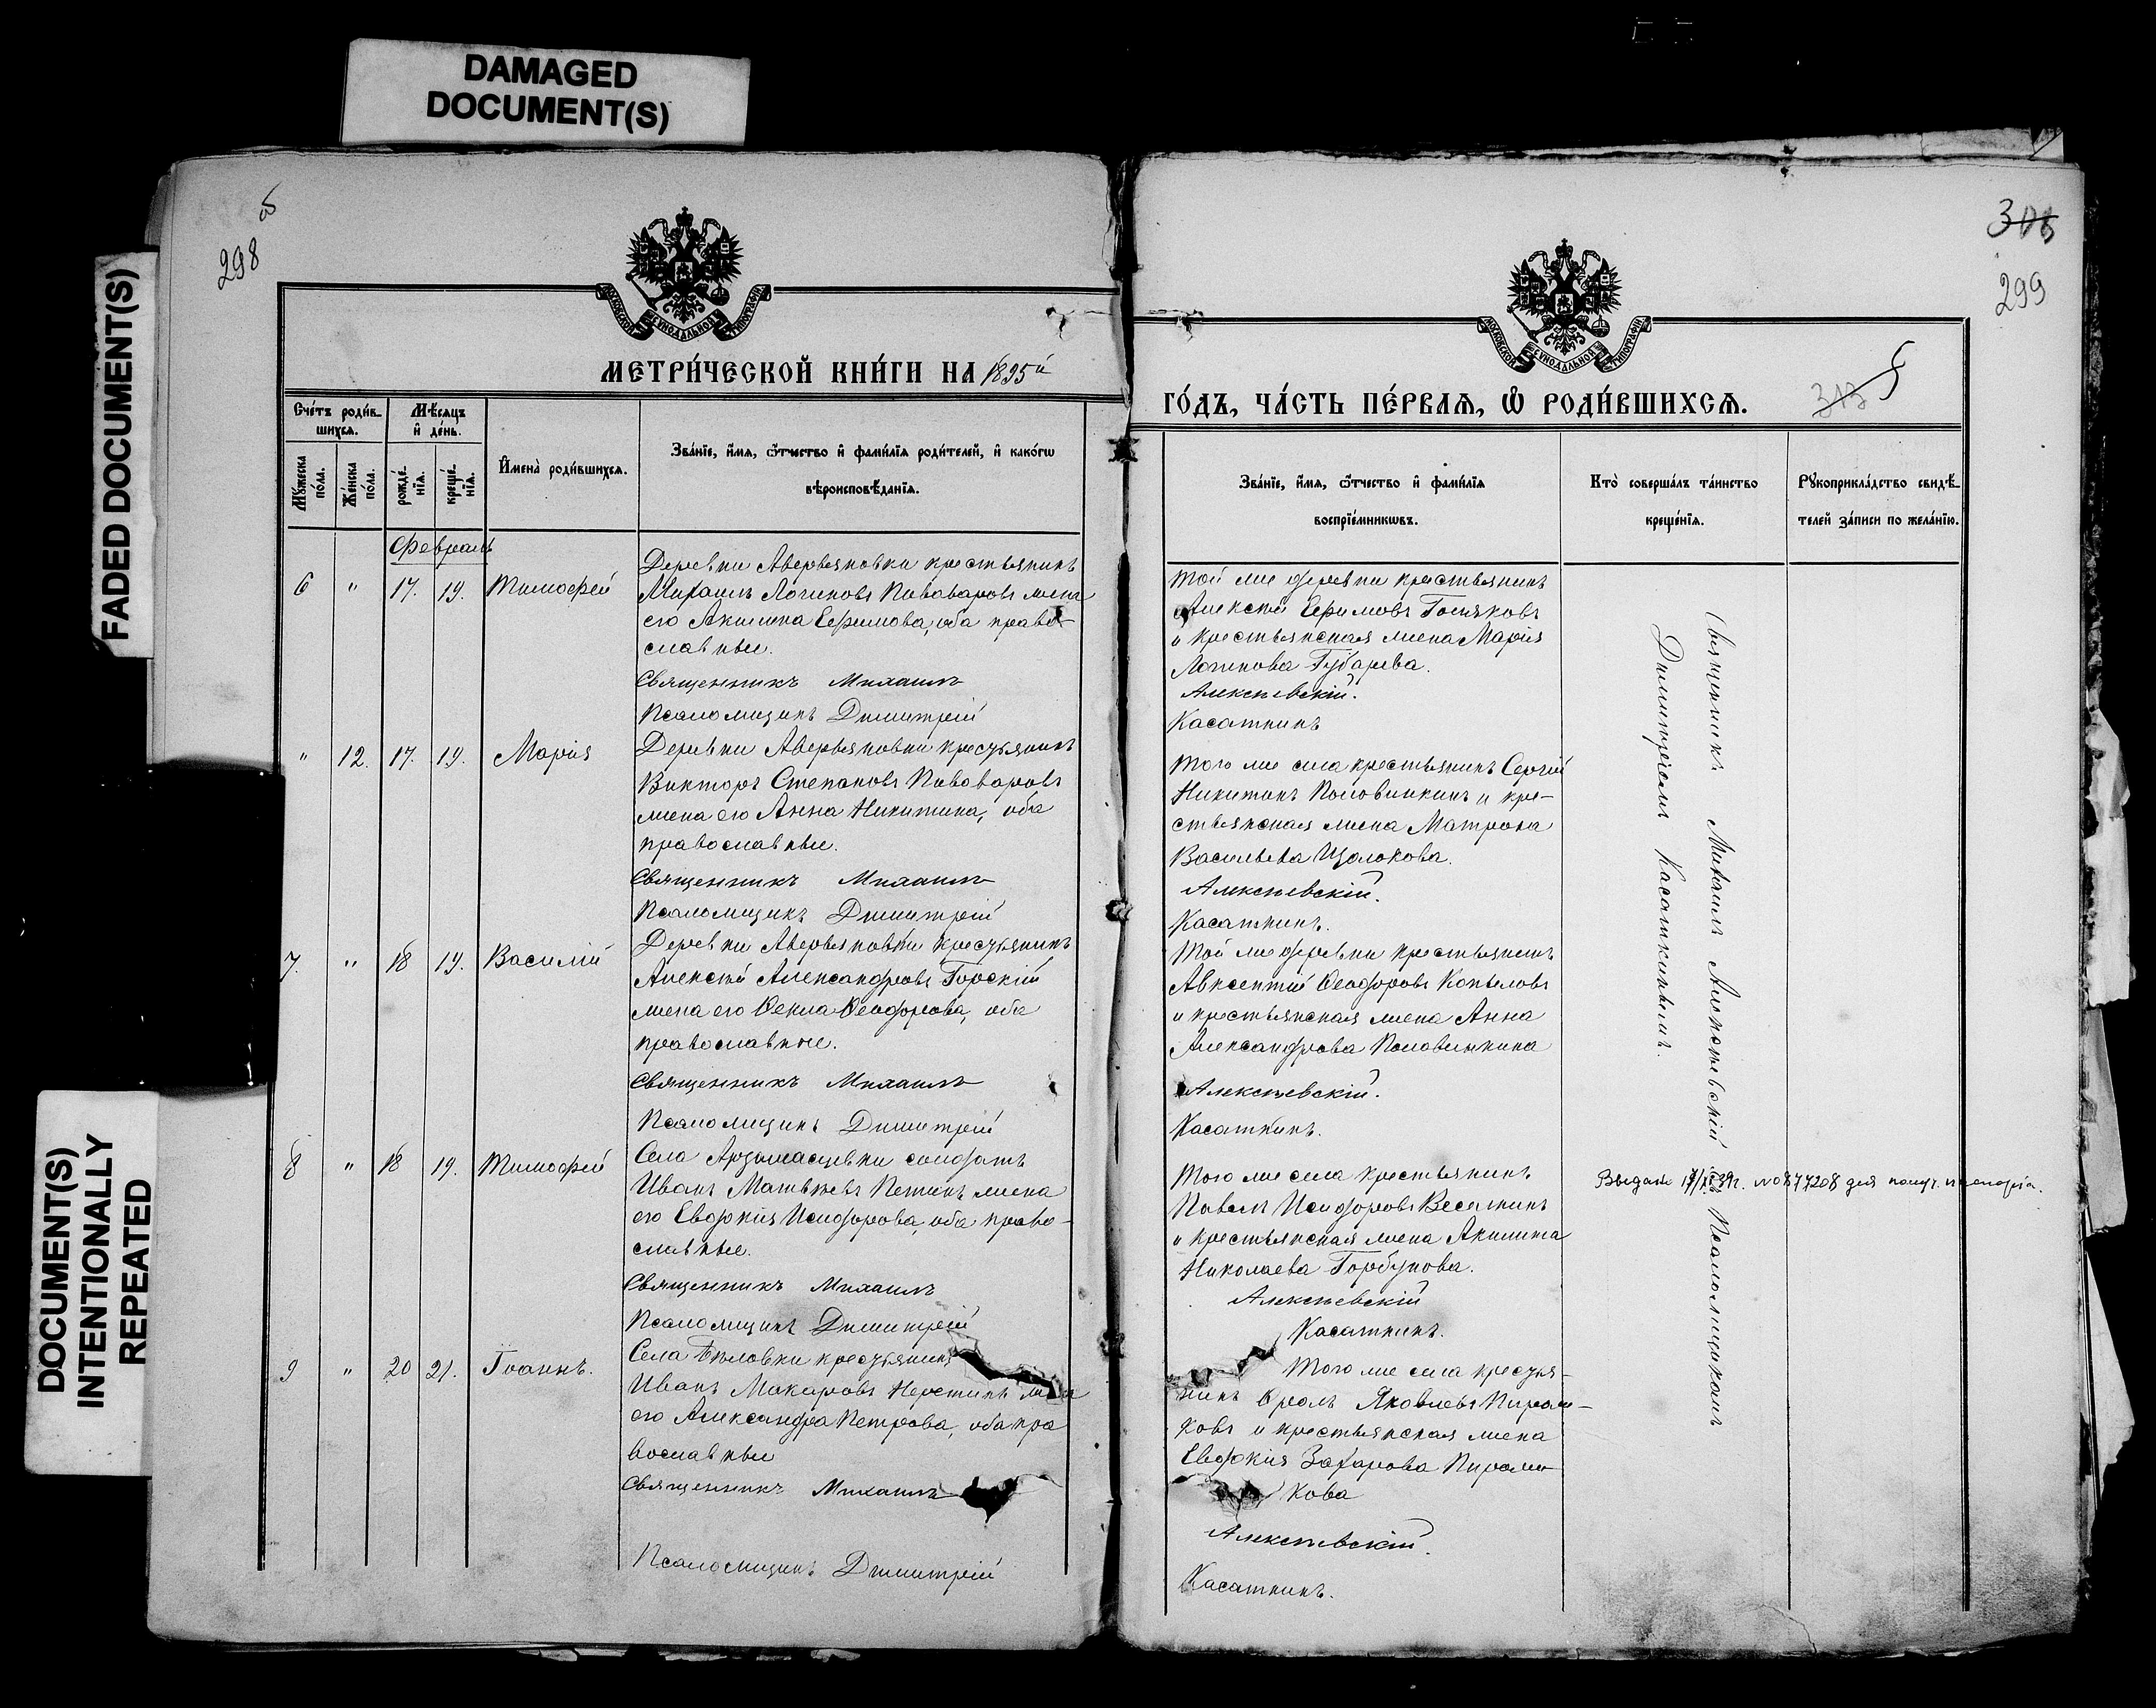 DAMAGED
DOCUMENT(S)
FADED DOCUMENT(S)
DOCUMENT(S)
INTENTIONALLY
REPEATED
298
МЕТРИ́ЧЕСКОЙ КНИ́ГИ НА 1895й
Сче́тъ роди́в-
шихсѧ.
Мѣ́сѧцъ
и҆ де́нь.
Мꙋ́жеска
по́ла.
Же́нска
по́ла.
рожде́-
нїѧ.
креще́-
нїѧ.
И҆мена̀ роди́вшихсѧ.
Зва́нїе, и҆́мѧ, ѻ҆́тчество и҆ фами́лїѧ роди́телей, и҆ како́гѡ
вѣроисповѣ́данїѧ.
Февраль
6 " 17. 19. Тимофей
Деревни Аверьяновки крестьянинъ
Михаилъ Логиновъ Пивоваровъ жена
его Акилина Ефимова, оба право-
славные.
Священникъ Михаилъ
Псаломщикъ Димитрій
" 12. 17. 19. Марія
Деревни Аверьяновки крестьянинъ
Викторъ Степановъ Пивоваровъ
жена его Анна Никитина, оба
православные.
Священникъ Михаилъ
Псаломщикъ Димитрій
7. " 18 19. Василій
Деревни Аверьяновки крестьянинъ
Алексѣй Александровъ Горскій
жена его Ѳекла Ѳеодорова, оба
православные.
Священникъ Михаилъ
Псаломщикъ Димитрій
8 " 18 19. Тимофей
Села Арзамасцевки солдатъ
Иванъ Матвѣевъ Петинъ жена
его Евдокія Исидорова, оба право-
славные.
Священникъ Михаилъ
Псаломщикъ Димитрій
9 " 20 21. Іоаннъ.
Села Бѣловки крестьянинъ
Иванъ Макаровъ жена
его Александра Петрова, оба пра
вославные
Священникъ Михаилъ
Псаломщикъ Димитрій
299
ГО́ДЪ, ЧА́СТЬ ПЕ́РВАѦ, Ѽ РОДИ́ВШИХСѦ.
Зва́нїе, и҆́мѧ, ѻ҆́тчество и҆ фами́лїѧ
воспрїе́мникѡвъ.
Кто̀ соверша́лъ та́инство
креще́нїѧ.
Рꙋкоприкла́дство свидѣ́-
телей за́писи по жела́нїю.
Той же деревни крестьянинъ
Алексѣй Ефимовъ
и крестьянская жена Марія
Логинова Губарева.
Алексѣевскій.
Касаткинъ
Того же села крестьянинъ Сергій
Никитинъ Половинкинъ и кре-
стьянская жена Матрона
Васильева Щолокова.
Алексѣевскій.
Касаткинъ.
Той же деревни крестьянинъ
Авксентій Ѳеодоровъ Копыловъ
и крестьянская жена Анна
Александрова Половинкина
Алексѣевскій.
Касаткинъ.
Того же села крестьянинъ
Павелъ Исидоровъ Веселкинъ
и крестьянская жена Акилина
Николаева Горбунова.
Алексѣевскій
Касаткинъ.
Того же села крестья-
нинъ Фролъ Яковлевъ
ковъ и крестьянская жена
Евдокія Захарова
кова
Алексѣевскій.
Касаткинъ.
Священникъ Михаилъ Алексѣевскій съ Псаломщикомъ
Димитріемъ Касаткинымъ.